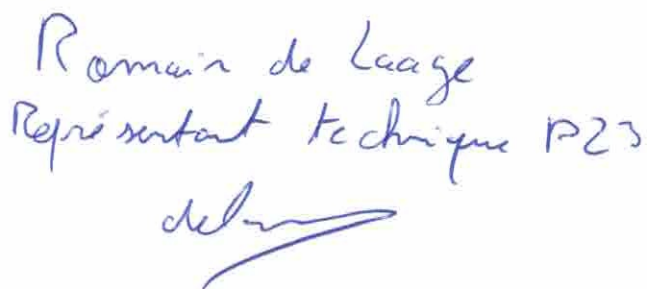 Romain de Laage
Représentant technique P23